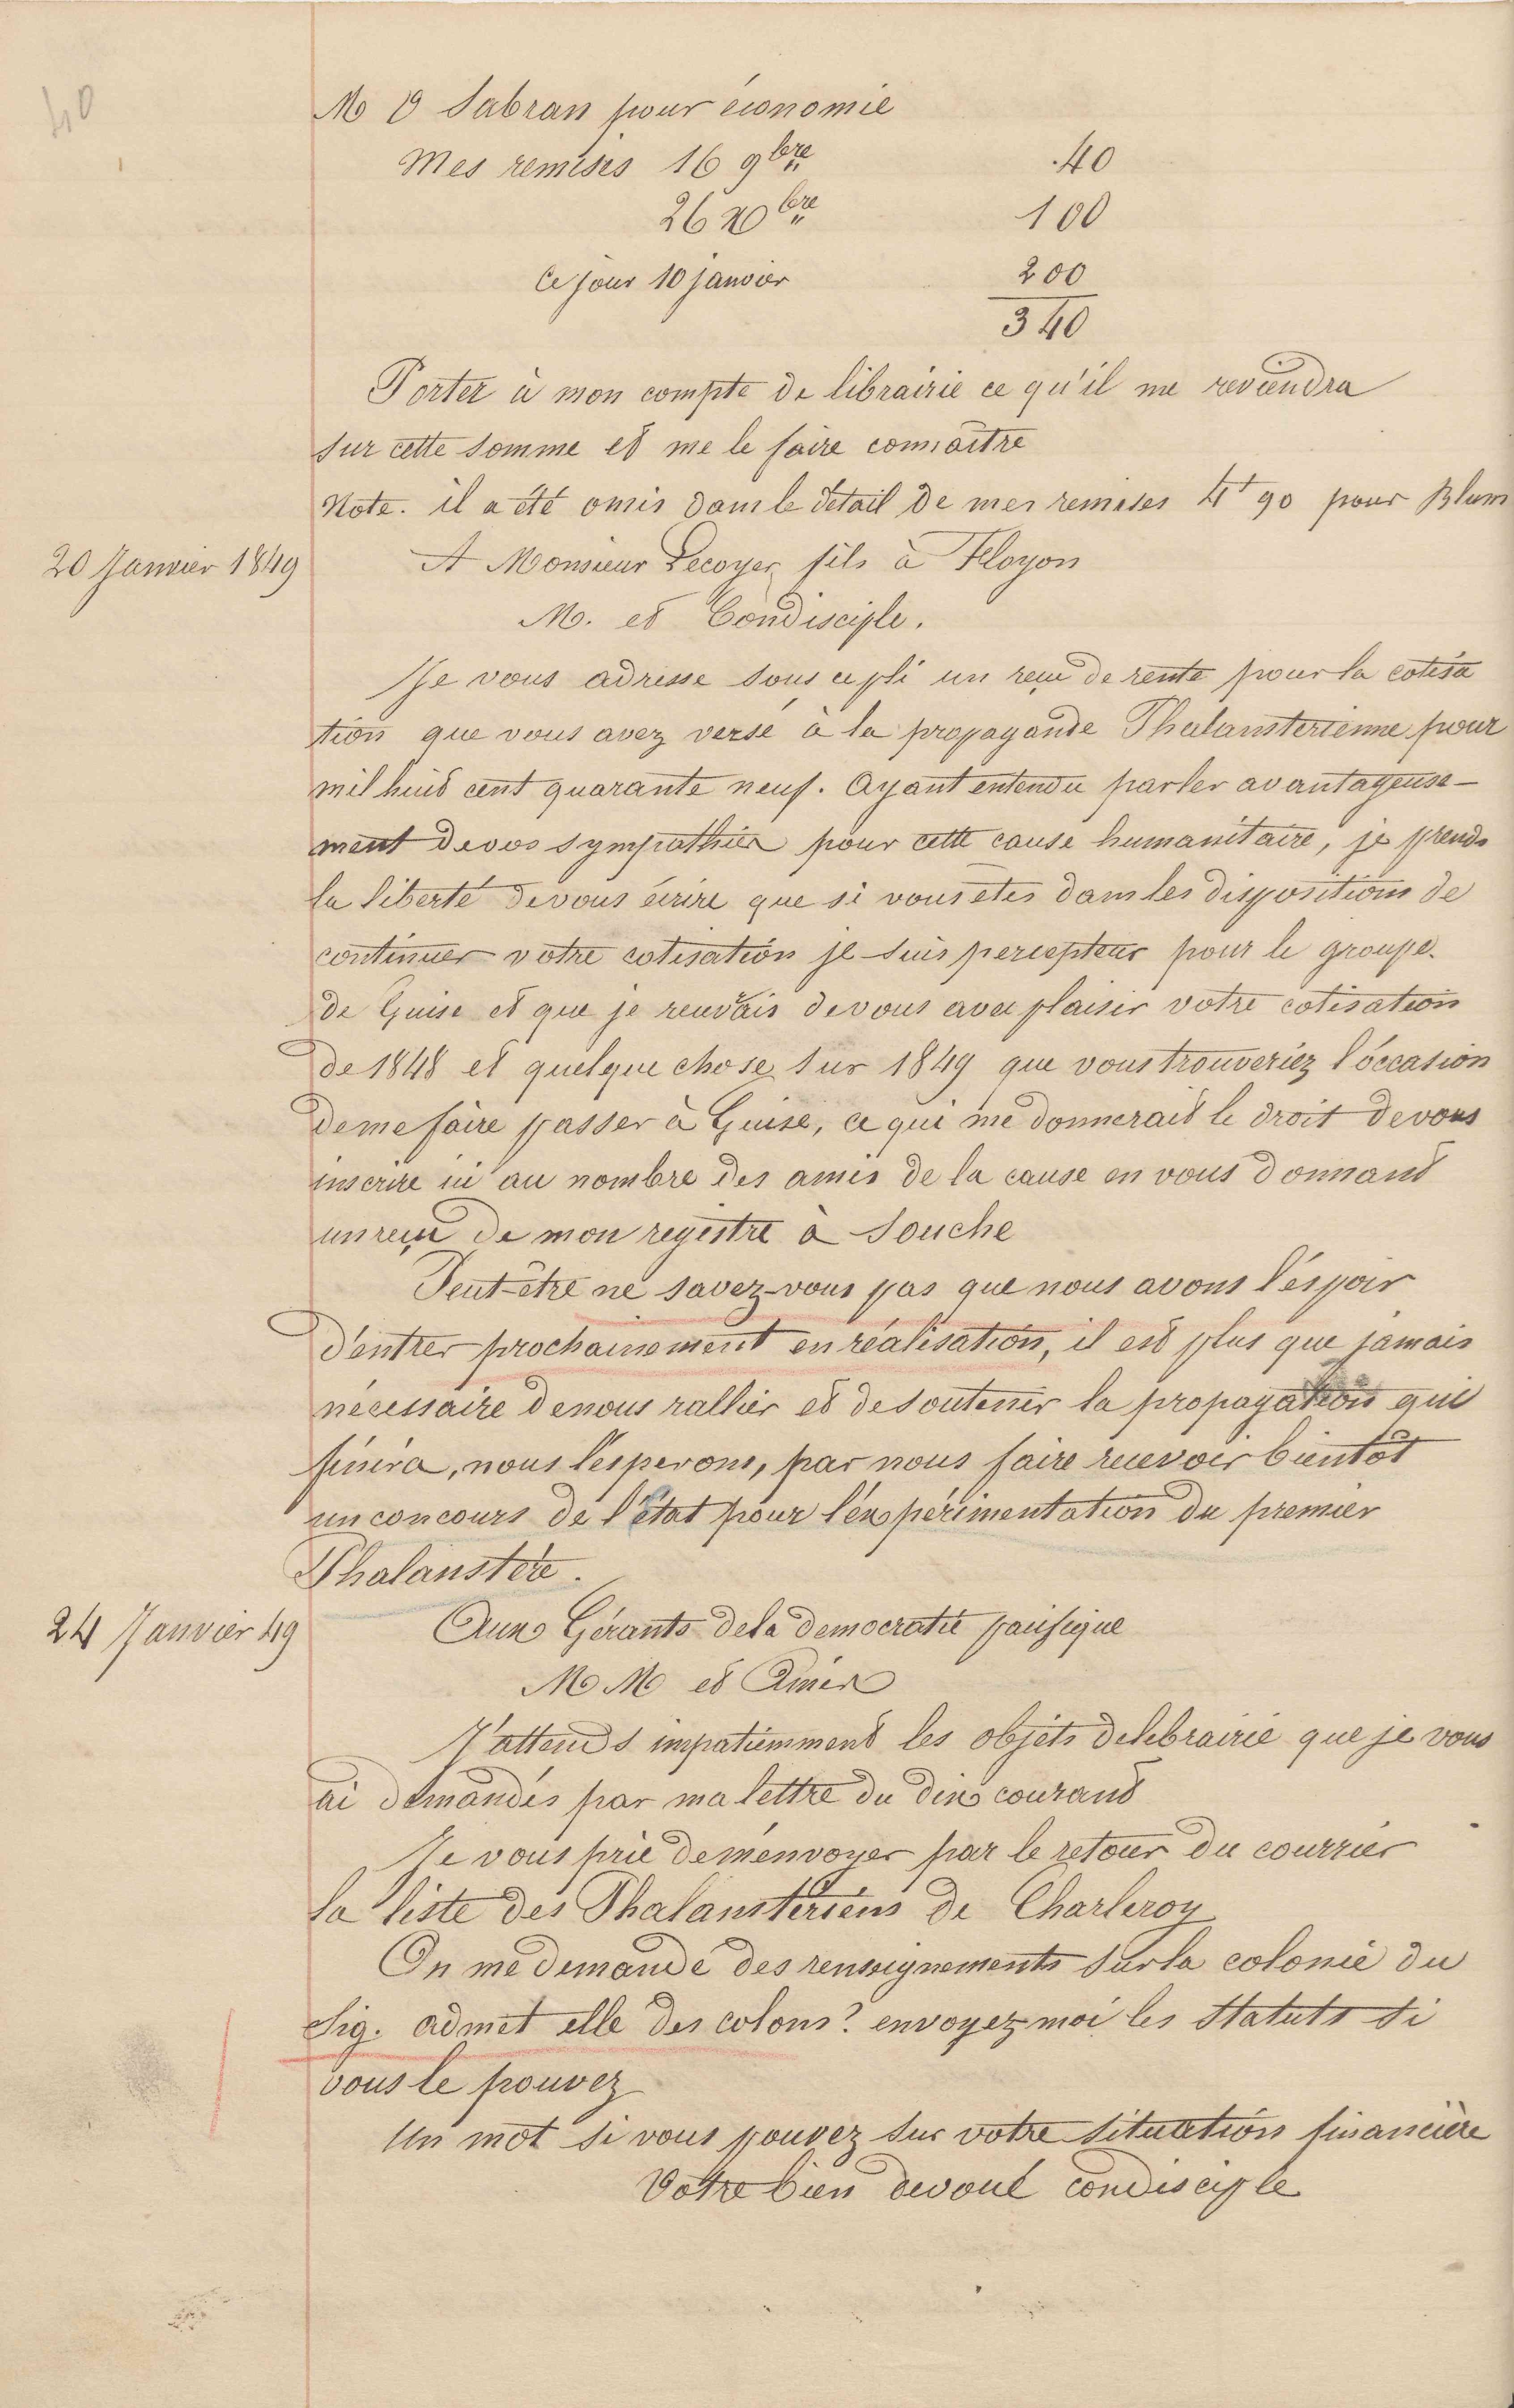 40
M O Sabran pour économie
Mes remises 16 9bre 40
26 Xbre 100
Ce jour 10 janvier 200
340
Porter à mon compte de librairie ce qu'il me reviendra
sur cette somme et me le faire connaître
Note. il a été omis dans le détail de mes remises 4f 90 pour Blum
20 Janvier 1849
A Monsieur Lecoyer fils à Floyon
M. et Condisciple.
Je vous adresse sous ce pli un reçu de rente pour la cotisa
tion que vous avez versé à la propagande Phalansterienne pour
mil huit cent quarante neuf. Ayant entendu parler avantageuse-
ment de vos sympathies pour cette cause humanitaire, je prends
la liberté de vous écrire que si vous etes dans les dispositions de
continuer votre cotisation je suis percepteur pour le groupe
de Guise et que je recevrais de vous avec plaisir votre cotisation
de 1848 et quelque chose sur 1849 que vous trouveriez l'occasion
de me faire passer à Guise, ce qui me donnerait le droit de vous
inscrire ici au nombre des amis de la cause en vous donnant
un reçu de mon registre à Souche
Peut-être ne savez-vous pas que nous avons l'espoir
d'entrer prochainement en réalisation, il est plus que jamais
nécessaire de nous rallier et de soutenir la propagation qui
finira, nous l'esperons, par nous faire recevoir bientôt
un concours de l'état pour l'expérimentation du premier
Phalanstère.
24 Janvier 49
Aux Gérants de la democratie pacifique
M M et Amis
J'attends impatiemment les objets de librairie que je vous
ai demandés par ma lettre du dix courant
Je vous prie de m'envoyer par le retour du courrier
la liste des Phalanstériens de Charleroy
On me demande des renseignements sur la colonie du
Sig. admet elle des colons? envoyez moi les Statuts si
vous le pouvez
Un mot si vous pouvez sur votre situation financière
Votre bien devoué condisciple